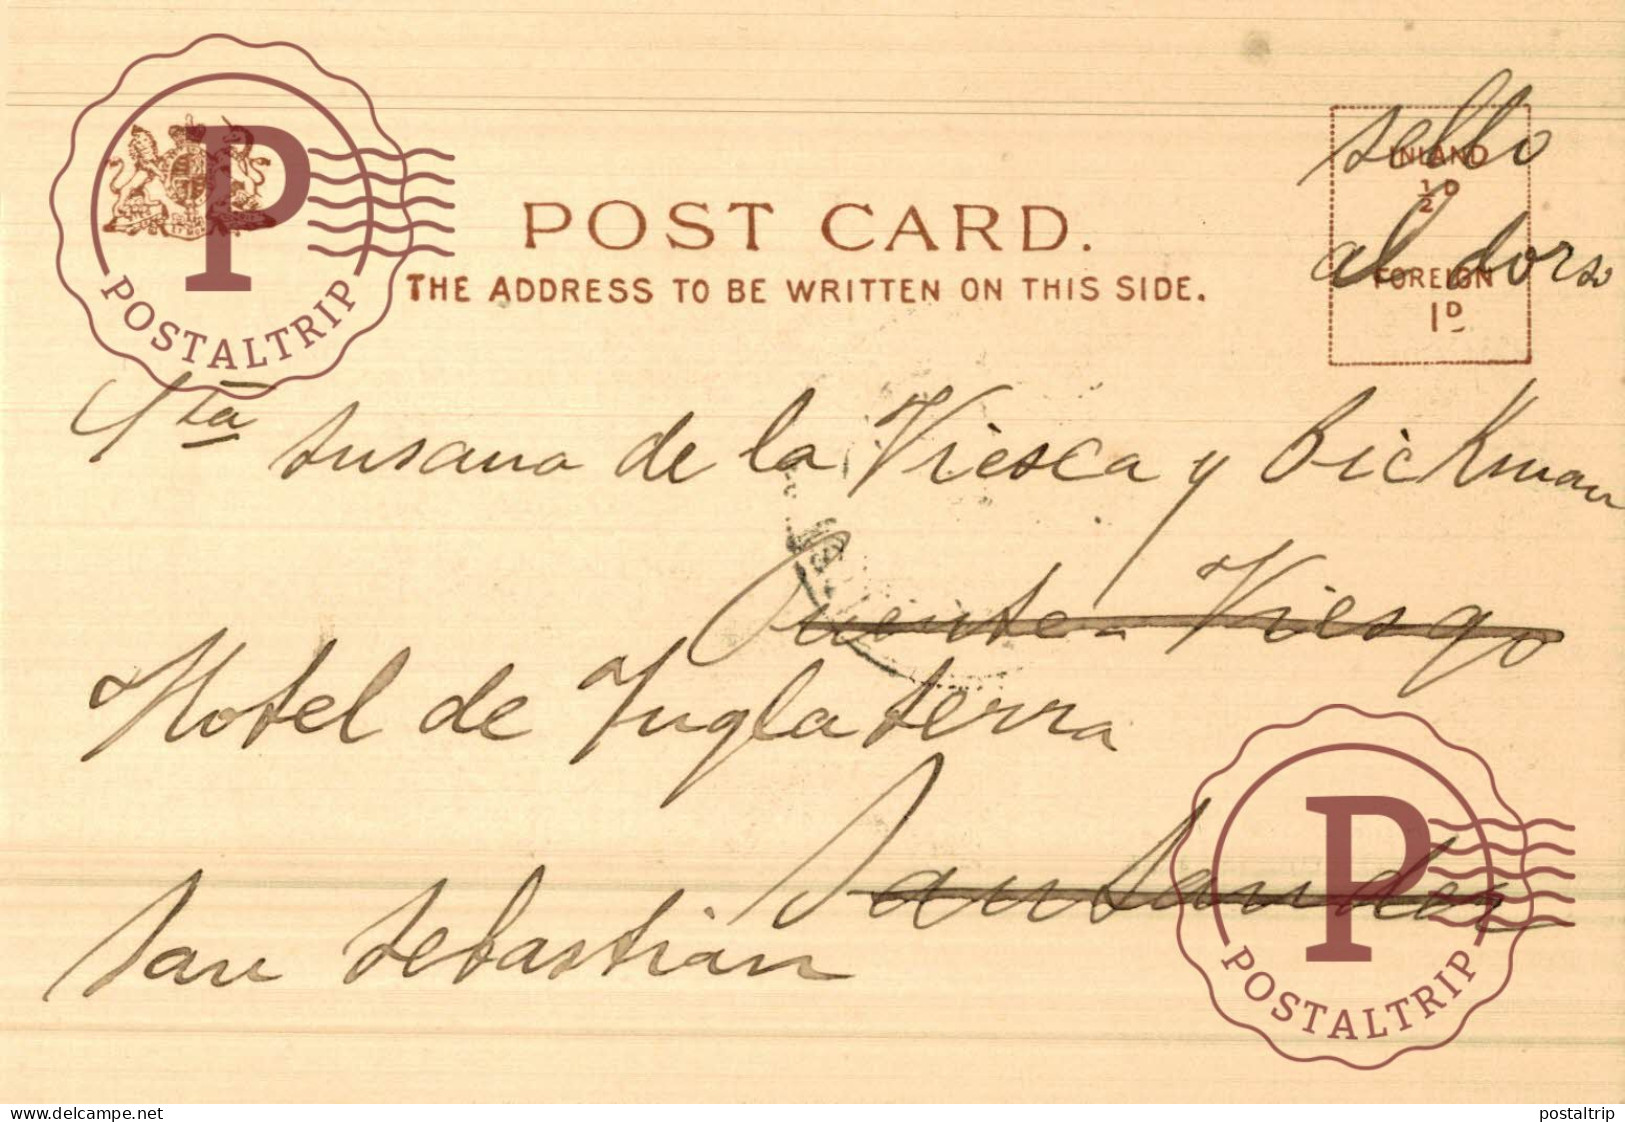 POST CARD.
THE ADDRESS TO BE WRITTEN ON THIS SIDE.
sello
al dorso
INLAND
½D
FOREIGN
1D
Sta Susana de la Viesca y Bickman
Puente-Viesgo
Hotel de Inglaterra
Santander
San Sebastián
P
POSTALTRIP
P
POSTALTRIP
www.delcampe.net
postaltrip